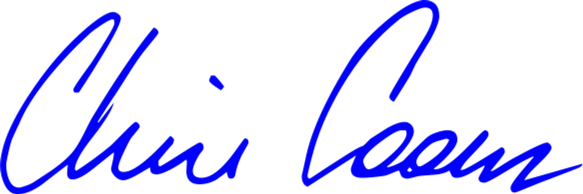 Chris Coons